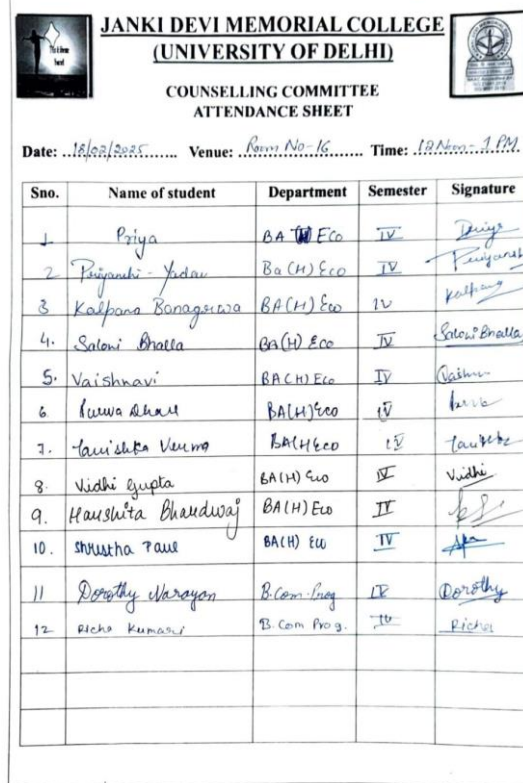 JANKI DEVI MEMORIAL COLLEGE
(UNIVERSITY OF DELHI)
COUNSELLING COMMITTEE
ATTENDANCE SHEET
Date: 18/02/2025 Venue: Room No-16 Time: 12 Noon - 1 PM
Sno. Name of student Department Semester Signature
1 Priya BA Eco IV Priya
2 Priyanshi - Yadav Ba (H) Eco IV Priyanshi
3 Kalpana BA (H) Eco IV Kalpana
4. Saloni Bhalla BA (H) Eco IV Saloni Bhalla
5. Vaishnavi BA (H) Eco IV
6 BA (H) Eco IV
7. Tanishka Verma BA (H) Eco IV
8. Vidhi Gupta BA (H) Eco IV Vidhi
9. Harshita Bhardwaj BA (H) Eco IV
10. Shristha Paul BA (H) Eco IV
11 Dorothy Narayan B.Com. Prog IV Dorothy
12 Richa Kumari B.Com Prog. IV Richa